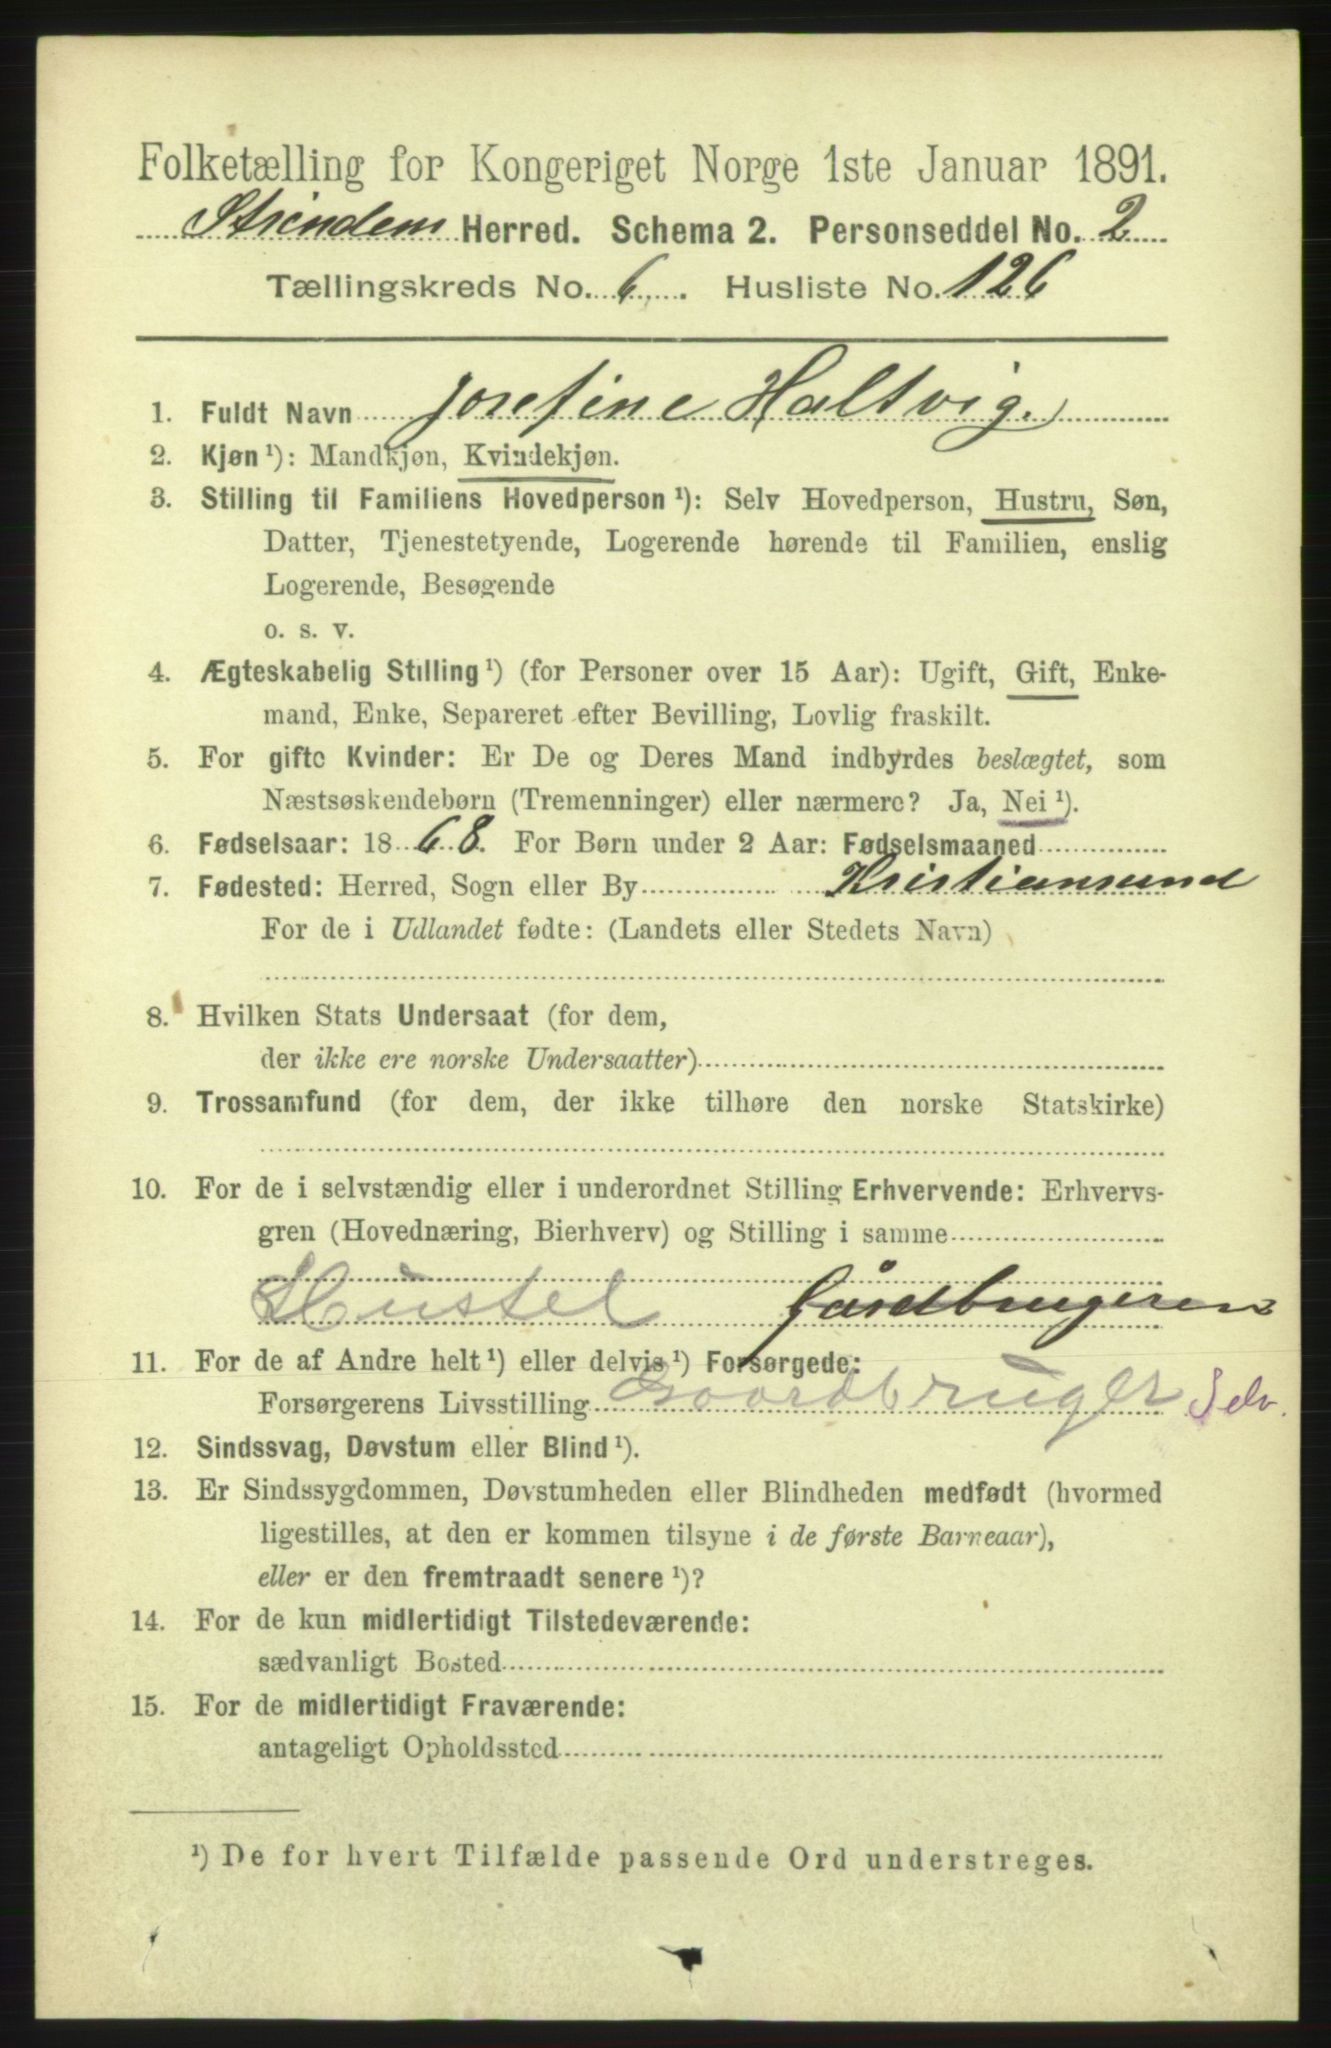 Folketælling for Kongeriget Norge 1ste Januar 1891.
Strinden Herred. Schema 2. Personseddel No. 2
Tællingskreds No. 6. Husliste No. 126
1. Fuldt Navn Josefine Haltvig.
2. Kjøn ¹): Mandkjøn, Kvindekjøn.
3. Stilling til Familiens Hovedperson ¹): Selv Hovedperson, Hustru, Søn,
Datter, Tjenestetyende, Logerende hørende til Familien, enslig
Logerende, Besøgende
o. s. v.
4. Ægteskabelig Stilling ¹) (for Personer over 15 Aar): Ugift, Gift, Enke-
mand, Enke, Separeret efter Bevilling, Lovlig fraskilt.
5. For gifte Kvinder: Er De og Deres Mand indbyrdes beslægtet, som
Næstsøskendebørn (Tremenninger) eller nærmere? Ja, Nei ¹).
6. Fødselsaar: 1868. For Børn under 2 Aar: Fødselsmaaned
7. Fødested: Herred, Sogn eller By Kristiansund
For de i Udlandet fødte: (Landets eller Stedets Navn)
8. Hvilken Stats Undersaat (for dem,
der ikke ere norske Undersaatter)
9. Trossamfund (for dem, der ikke tilhøre den norske Statskirke)
10. For de i selvstændig eller i underordnet Stilling Erhvervende: Erhvervs-
gren (Hovednæring, Bierhverv) og Stilling i samme
Hustel Gårdbrugeren
11. For de af Andre helt ¹) eller delvis ¹) Forsørgede:
Forsørgerens Livsstilling Gaardbruger Selv.
12. Sindssvag, Døvstum eller Blind ¹).
13. Er Sindssygdommen, Døvstumheden eller Blindheden medfødt (hvormed
ligestilles, at den er kommen tilsyne i de første Barneaar),
eller er den fremtraadt senere ¹)?
14. For de kun midlertidigt Tilstedeværende:
sædvanligt Bosted
15. For de midlertidigt Fraværende:
antageligt Opholdssted
¹) De for hvert Tilfælde passende Ord understreges.